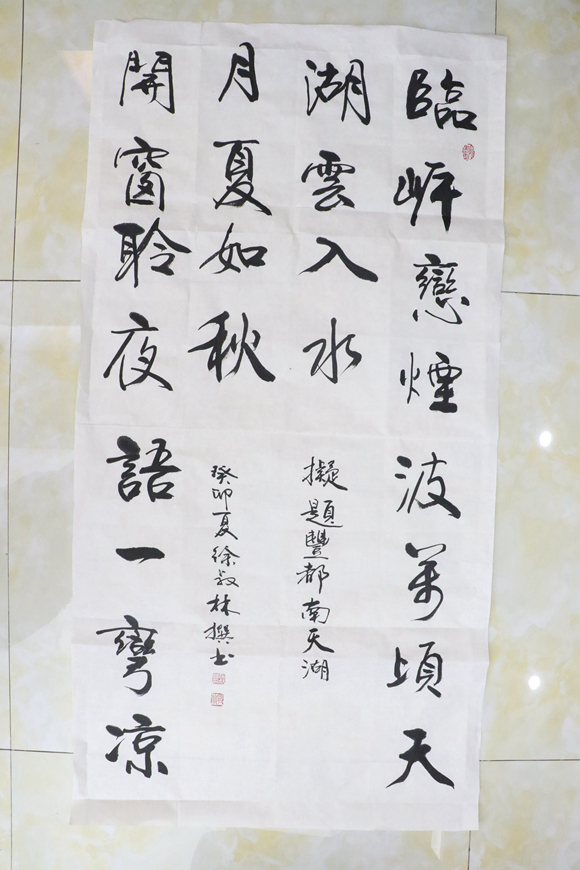 臨岸戀煙波萬頃天
湖雲入水
開窗聆夜語一彎凉
月夏如秋
擬題豐都南天湖
癸卯夏徐林撰书